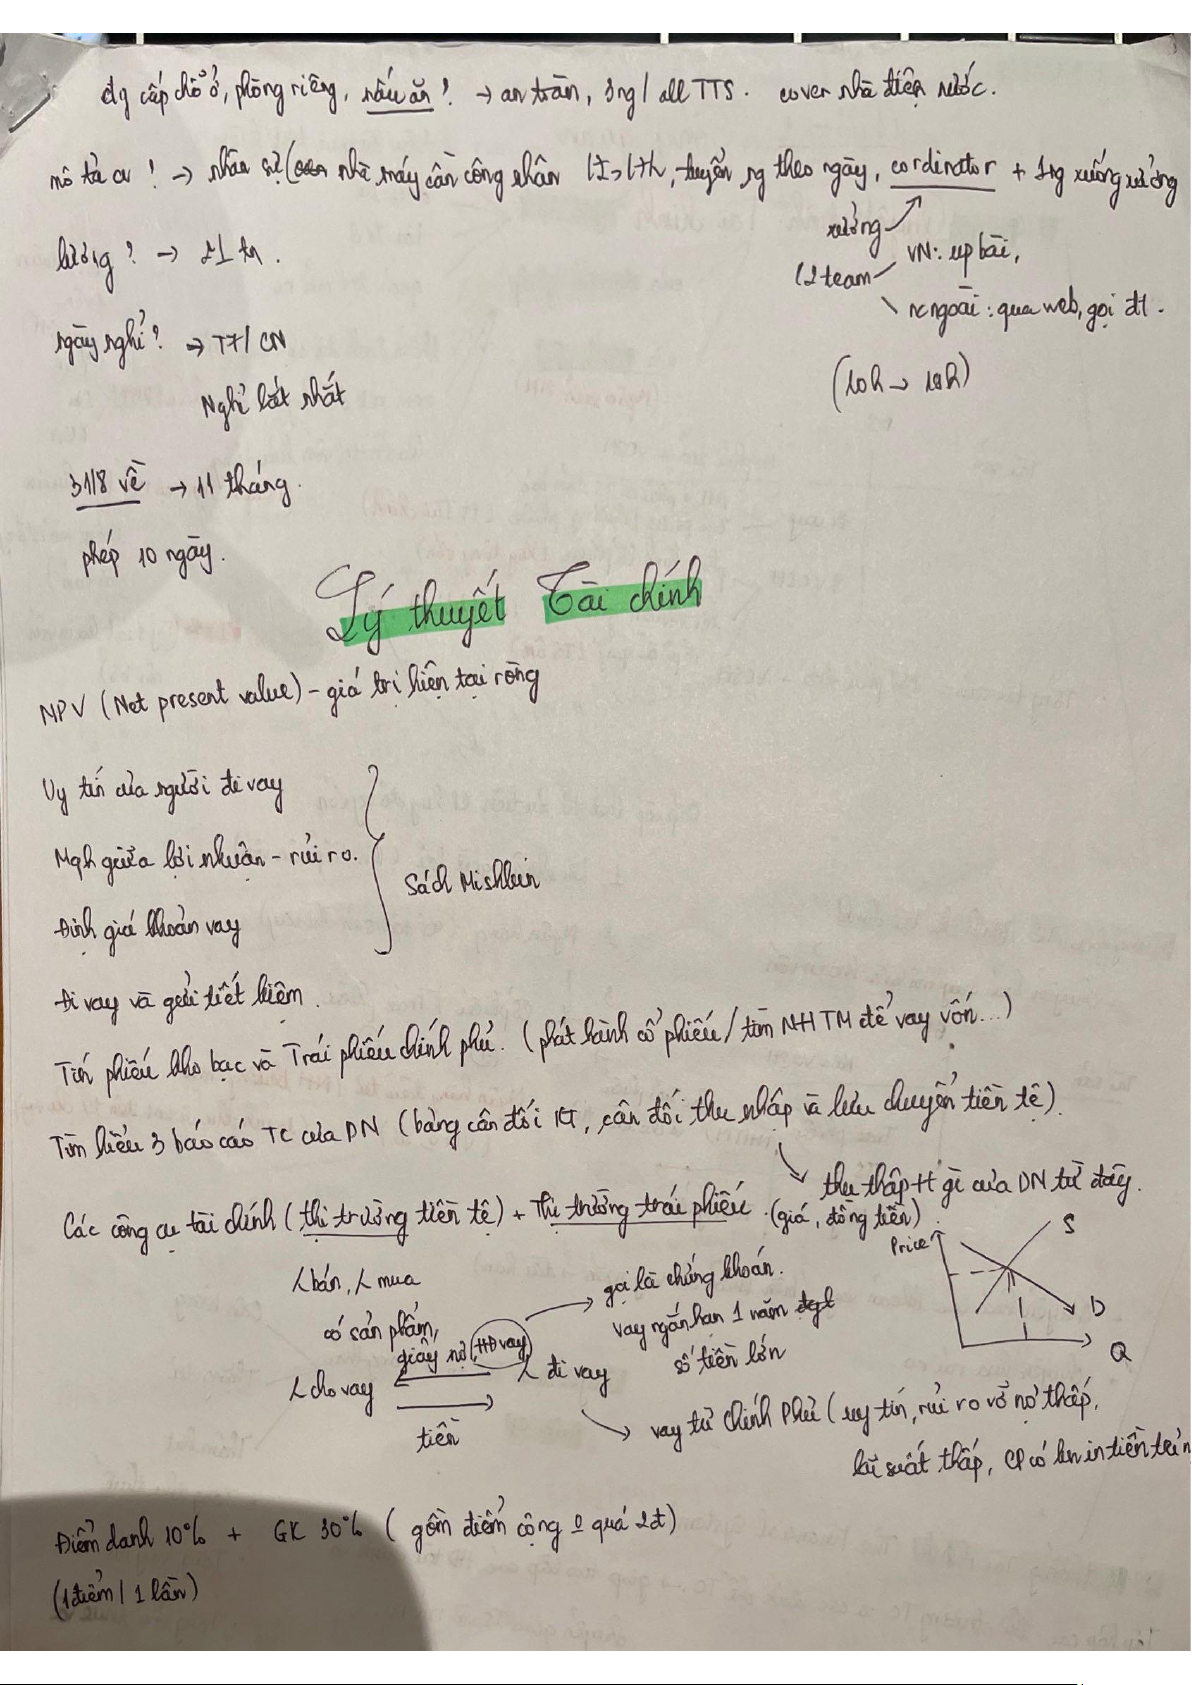 đg cấp chỗ ở, phòng riêng, nấu ăn? → an trần, 3ng/ all TTS. cover nhà điện nước.
mô tả cv? → nhân sự ( nhà máy cần công nhân, tuyển ng theo ngày, cordinator + 1ng xuống xưởng
xưởng
lương? → 21 tr.
(2 team
VN: up bài,
nc ngoài: qua web, gọi đt.
ngày nghỉ? → T7/ CN
Nghỉ lắt nhắt
(10h → 19h)
31/8 về → 11 tháng.
phép 10 ngày.
Lý thuyết Tài chính
NPV (Net present value) - giá trị hiện tại ròng
Uy tín của người đi vay
Mqh giữa lợi nhuận - rủi ro.
Sách Mishkin
Định giá khoản vay
Đi vay và gửi tiết kiệm.
Tín phiếu kho bạc và Trái phiếu chính phủ. (phát hành cổ phiếu / tìm NHTM để vay vốn...)
Tìm hiểu 3 báo cáo TC của DN (bảng cân đối KT, cân đối thu nhập và lưu chuyển tiền tệ).
thu thập tt gì của DN từ đây.
Các công cụ tài chính (thị trường tiền tệ) + Thị trường trái phiếu. (giá, đồng tiền)
Price
S
D
Q
bán, mua
có sản phẩm,
giấy nợ, HĐ vay
gọi là chứng khoán.
vay ngắn hạn 1 năm
số tiền lớn
cho vay
đi vay
tiền
vay từ chính phủ (uy tín, rủi ro vỡ nợ thấp,
lãi suất thấp, CP có in tiền
Điểm danh 10% + GK 30% (gồm điểm cộng o quá 2đ)
(1 điểm / 1 lần)